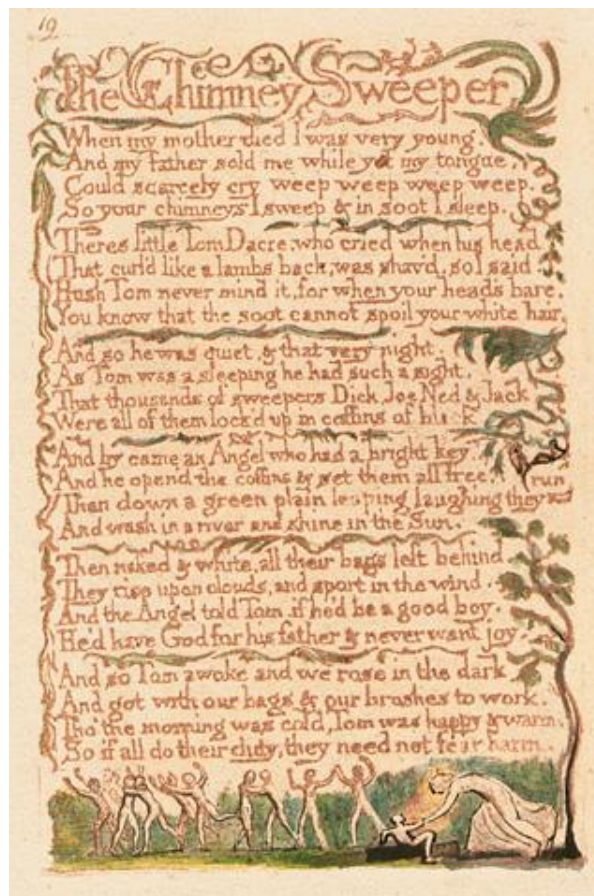 19
The Chimney Sweeper
When my mother died I was very young,
And my father sold me while yet my tongue,
Could scarcely cry weep weep weep weep.
So your chimneys I sweep & in soot I sleep.
Theres little Tom Dacre, who cried when his head
That curl'd like a lambs back, was shav'd, so I said.
Hush Tom never mind it, for when your head's bare,
You know that the soot cannot spoil your white hair.
And so he was quiet, & that very night,
As Tom was a sleeping he had such a sight,
That thousands of sweepers Dick, Joe, Ned & Jack
Were all of them lock'd up in coffins of black
And by came an Angel who had a bright key,
And he open'd the coffins & set them all free.
Then down a green plain leaping laughing they run
And wash in a river and shine in the Sun.
Then naked & white, all their bags left behind,
They rise upon clouds, and sport in the wind.
And the Angel told Tom, if he'd be a good boy,
He'd have God for his father & never want joy.
And so Tom awoke and we rose in the dark
And got with our bags & our brushes to work.
Tho' the morning was cold, Tom was happy & warm.
So if all do their duty, they need not fear harm.